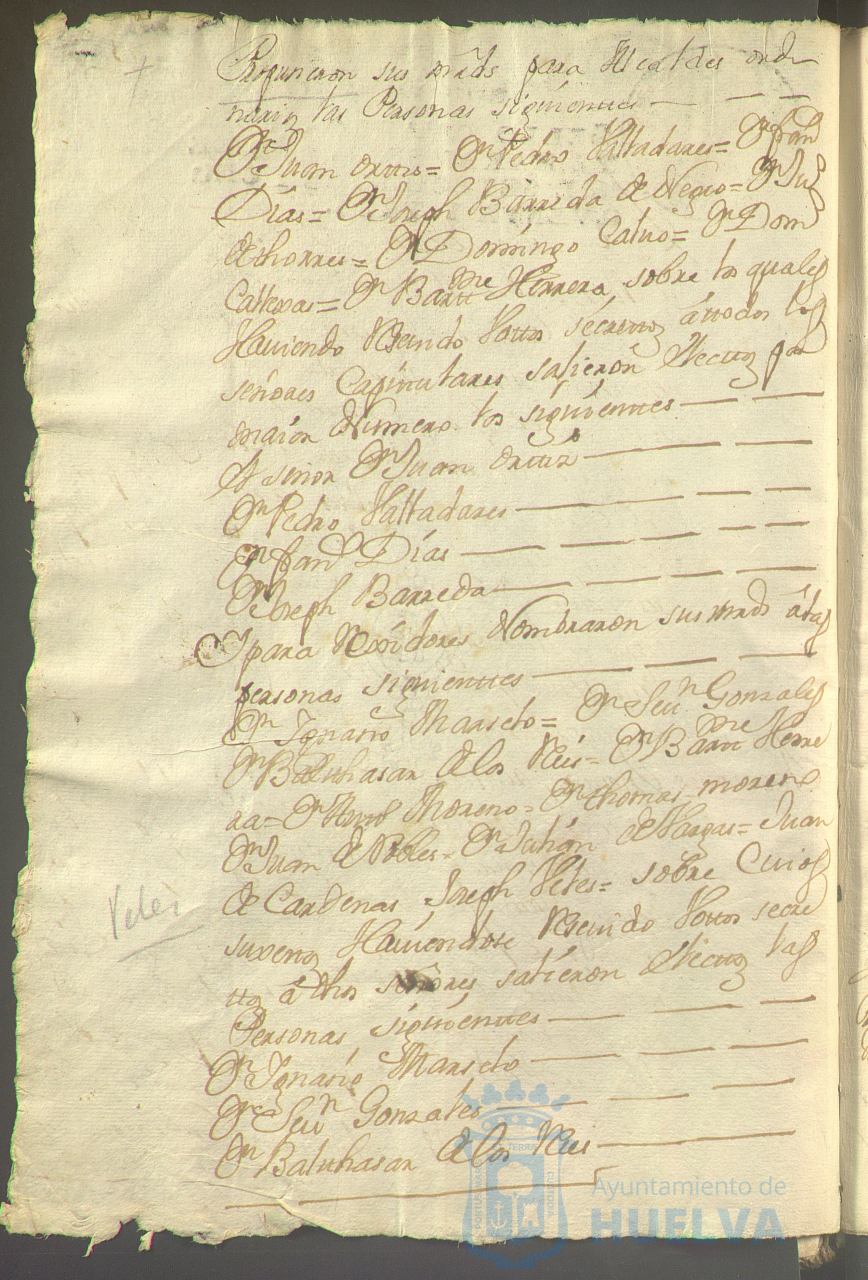 Propucieron sus mrds para Alcaldes ordi
narios las Personas siguientes
Dn Juan Ortis= Dn Pedro Valladares= Dn Franco
Días= Dn Joseph Barreda de Negro= Dn Jul
de thorres= Dn Domíngo Calvo= Dn Dom
Callexas= Dn Bartme Herrera sobre los quales
Haviendo Resiuido Vottos secretos á ttodos los
señores Capitulares salieron Electos por
maior Numero los siguientes
El señor Dn Juan Ortiz
Dn Pedro Valladares
Dn Franco Días
Dn Joseph Barreda
Y para Rexidores Nombraron sus mrds á las
personas siguienttes
Dn Ignasio Marselo= Dn Seun Gonzales
Dn Balthasar de los Reis= Dn Bartme Herre
ra= Dn Moreno= Dn thomas moreno
Dn Juan de Robles= Dn Julián de Vargas= Juan
de Cardenas Joseph Veles= sobre Cuios
suxetos Haviendose Reseuido Vottos secre
ttos á dhos señores salieron Electos las
Personas siguientes
Dn Ignasio Marselo
Dn Seun Gonzales
Dn Balthasar de los Reis
Veles
Ayuntamiento de
HUELVA